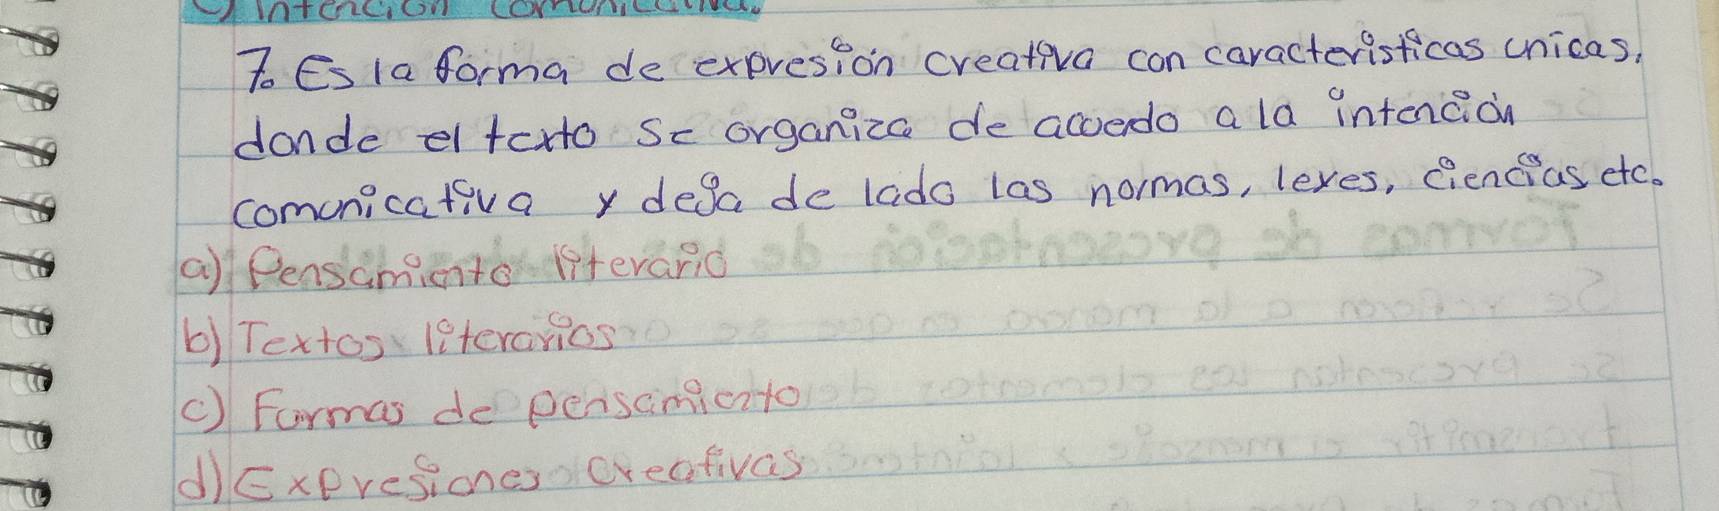 c) intención comunicativa.
7. Es la forma de expresión creativa con caracteristicas unicas,
donde el texto se organiza de acuedo a la intención
comunicativa y deja de lado las normas, leyes, ciencias etc.
a) Pensamiento literario
b) Textos literarios
c) Formas de pensamiento
d) Expresiones creativas